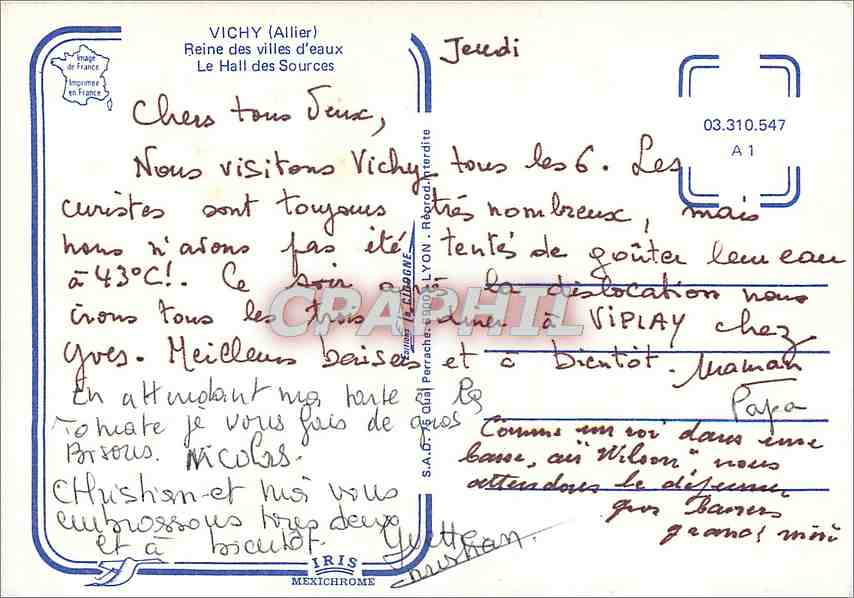 VICHY (Allier)
Reine des villes d'eaux
Le Hall des Sources
Image
de France
Imprimée
en France
Jeudi
03.310.547
A 1
Chers tous deux,
Nous visitons Vichy tous les 6. Les
curistes sont toujours très nombreux, mais
nous n'avons pas été tentés de goûter leur eau
à 43°C!. Ce soir après la dislocation nous
irons tous les trois diner à VIPLAY chez
Yves. Meilleurs baisers et à bientôt. Maman
Papa
En attendant ma tarte à la
Tomate je vous fais de gros
Bisous. Nicolas.
Christian et moi vous
embrassons tous deux
et à bientôt. Yvette
Christian.
Comme un roi dans une
basse, au "Wilson", nous
attendons le déjeuner
gros baisers
grand'
Editions la CIGOGNE
S.A.D. 75 Quai Perrache. 69002 LYON. Réprod. interdite
IRIS
MEXICHROME
CPAPHIL